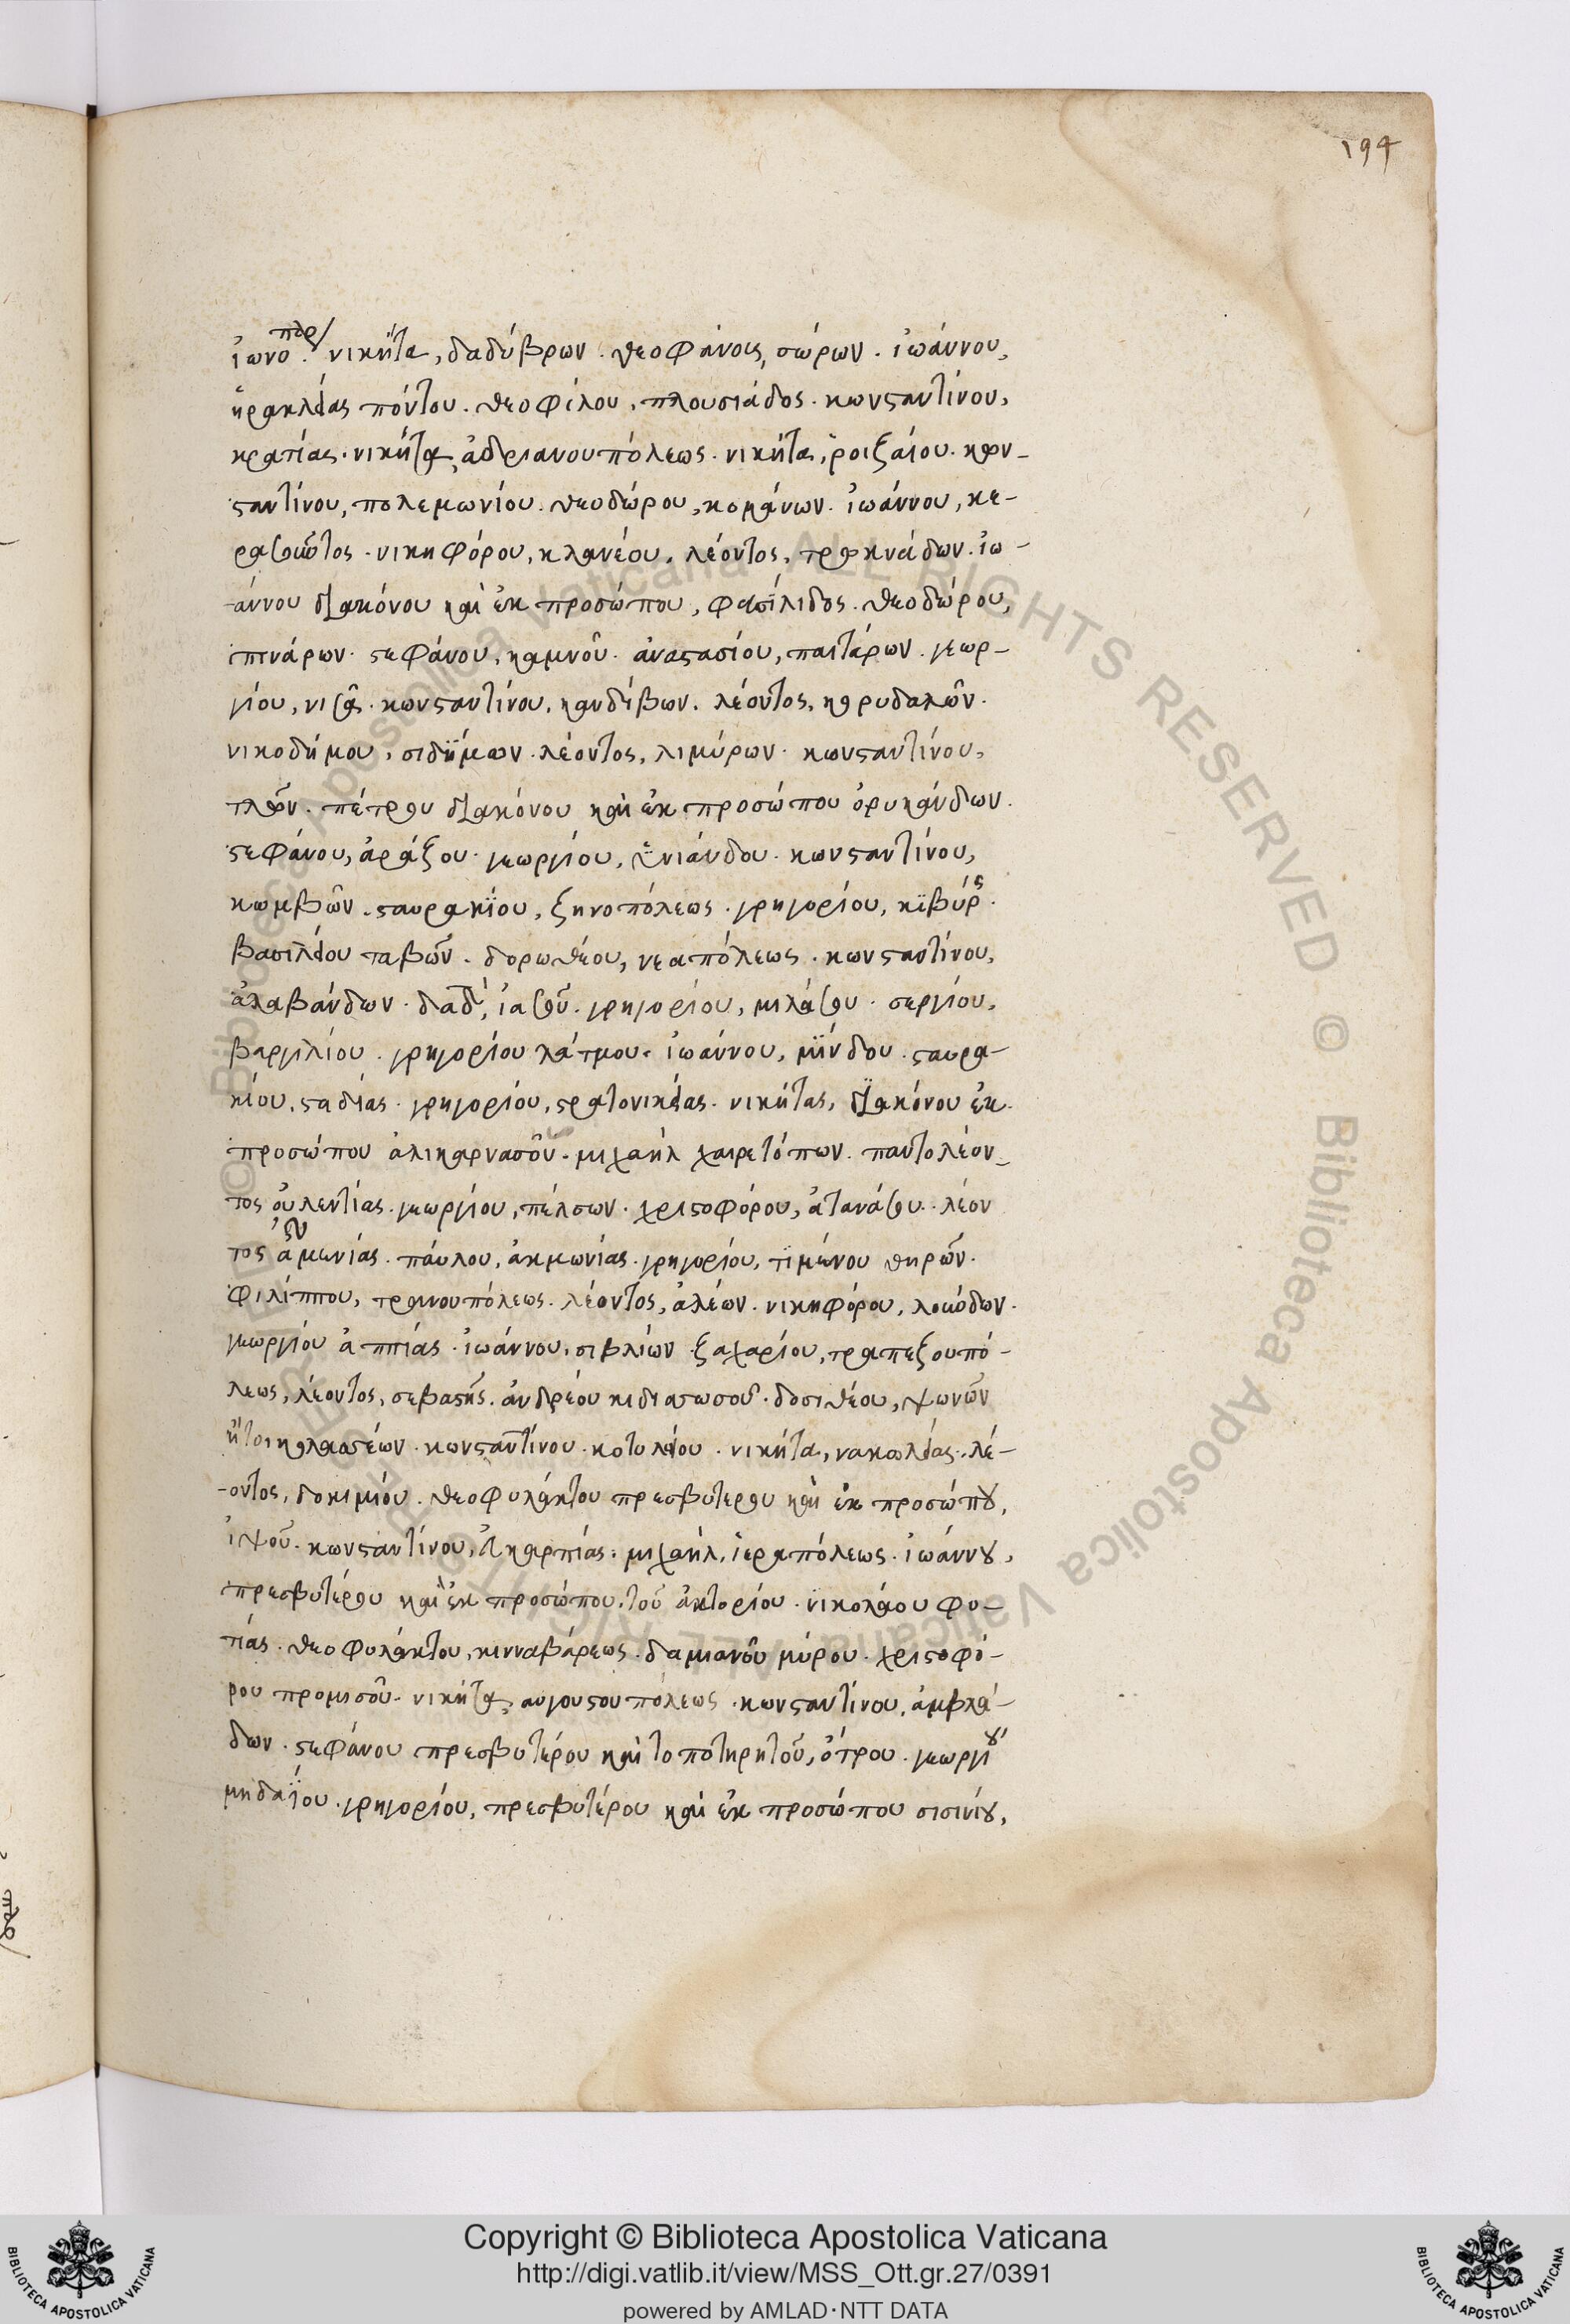 194
ἰωνοπὸ. νικήτα, δαδύβρων. θεοφάνους, σώρων. ἰωάννου,
ἡρακλείας πόντου. θεοφίλου, πλουσιάδος. κωνσταντίνου,
κρατίας. νικήτα, ἀδριανουπόλεως. νικήτα, ῥοιζαίου. κων-
σταντίνου, πολεμωνίου. θεοδώρου, κομάνων. ἰωάννου, κε-
ρασοῦντος. νικηφόρου, κλανέου. λέοντος, τροκνάδων. ἰω-
άννου διακόνου καὶ ἐκ προσώπου, φασίλιδος. θεοδώρου,
πινάρων. στεφάνου, καμνοῦ. ἀναστασίου, παιτάρων. γεωρ-
γίου, νισᾶ. κωνσταντίνου, κανδίβων. λέοντος, κορυδαλῶν.
νικοδήμου, σιδήμων. λέοντος, λιμύρων. κωνσταντίνου,
τλῶν. πέτρου διακόνου καὶ ἐκ προσώπου ὀρυκάνδων.
στεφάνου, ἀράξου. γεωργίου, ὀνιάνδου. κωνσταντίνου,
κωμβῶν. σταυρακίου, ζηνοπόλεως. γρηγορίου, κιβύρς.
βασιλείου ταβῶν. δωρωθέου, νεαπόλεως. κωνσταντίνου,
ἀλαβάνδων. δαδ, ἰασοῦ. γρηγορίου, μιλάσου. σεργίου,
βαργιλίου. γρηγορίου λάτμου. ἰωάννου, μίνδου. σταυρα-
κίου, σταδίας. γρηγορίου, στρατονικείας. νικήτας, διακόνου ἐκ
προσώπου ἁλικαρνασοῦ. μιχαὴλ χαιρετόπων. παντολέον-
τος οὐλεντίας. γεωργίου, πέλσων. χριστοφόρου, ἀτανάσου. λέον
τος εὐμενίας. παύλου, ἀκμωνίας. γρηγορίου, τιμένου θηρῶν.
φιλίππου, τραινουπόλεως. λέοντος, ἀλέων. νικηφόρου, λούδων.
γεωργίου ἀππίας. ἰωάννου, σιβλίων. ζαχαρίου, τραπεζουπό-
λεως, λέοντος, σεβαστῆς. ἀνδρέου κιδισσωσοῦ. δοσιθέου, χωνῶν
ἤτοι κολασσέων. κωνσταντίνου. κοτυλαίου. νικήτα, νακωλείας. λέ-
οντος, δοκιμίου. θεοφυλάκτου πρεσβυτέρου καὶ ἐκ προσώπου,
ἱψοῦ. κωνσταντίνου, εὐκαρπίας. μιχαὴλ, ἱεραπόλεως. ἰωάννου,
πρεσβυτέρου καὶ ἐκ προσώπου. τοῦ ἀκτορίου. νικολάου φυ-
τίας. θεοφυλάκτου, κινναβάρεως. δαμιανοῦ μύρου. χριστοφό-
ρου προμισοῦ. νικήτα, αὐγουστουπόλεως. κωνσταντίνου, ἀμβλά-
δων. στεφάνου πρεσβυτέρου καὶ τοποτηρητοῦ, ὄτρου. γεωργίου
μηδαΐου. γρηγορίου, πρεσβυτέρου καὶ ἐκ προσώπου σισινίου,
© Biblioteca Apostolica Vaticana ALL RIGHTS RESERVED
Copyright © Biblioteca Apostolica Vaticana
http://digi.vatlib.it/view/MSS_Ott.gr.27/0391
powered by AMLAD·NTT DATA
BIBLIOTECA APOSTOLICA VATICANA
BIBLIOTECA APOSTOLICA VATICANA